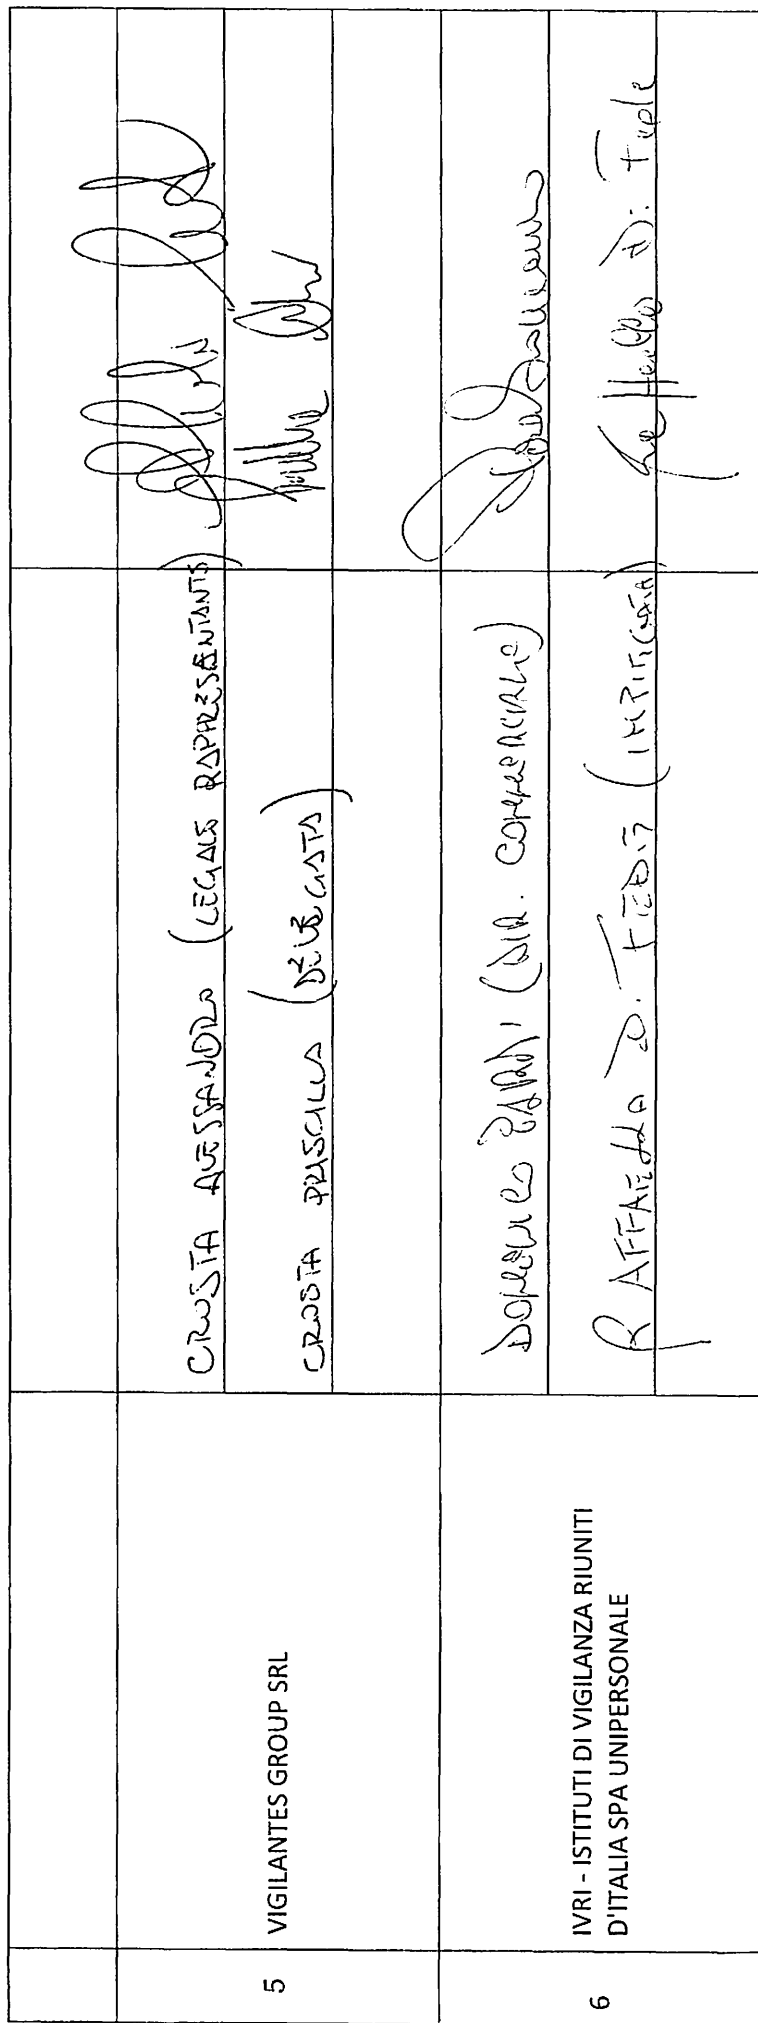 5
VIGILANTES GROUP SRL
CROSTA ALESSANDRO (LEGALE RAPPRESENTANTE)
CROSTA PRISCILLA (DELEGATA)
6
IVRI - ISTITUTI DI VIGILANZA RIUNITI
D'ITALIA SPA UNIPERSONALE
DOMENICO (DIR. COMMERCIALE)
RAFFAELLA DI FEDE (IMPIEGATA)
Raffaella Di Fede